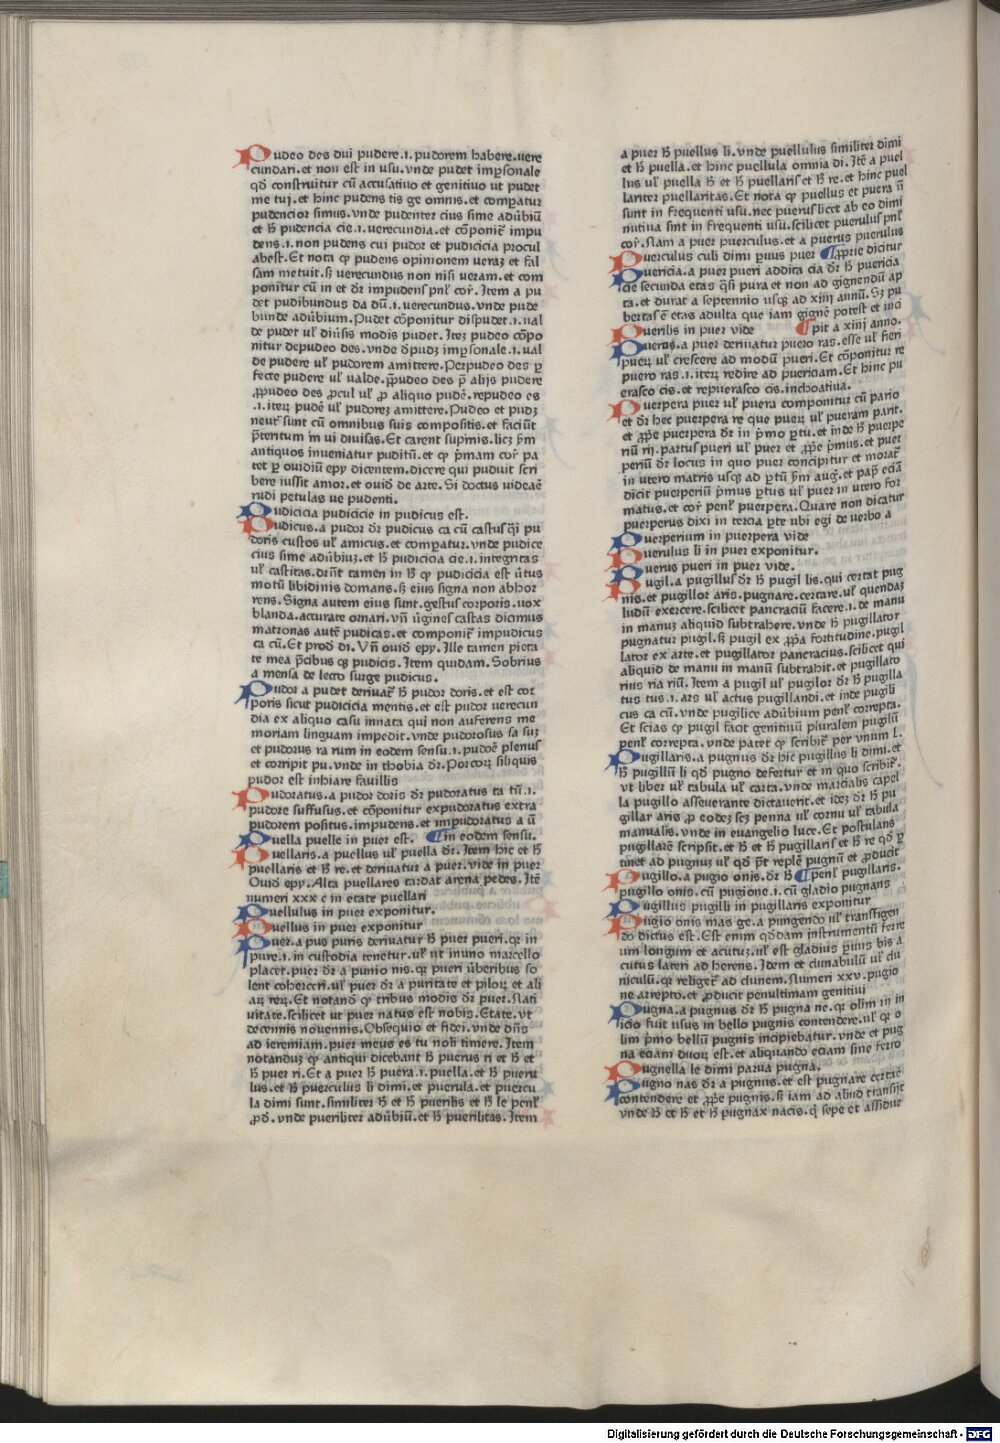 Pudeo des dui pudere.i.pudorem habere.uere
cundari.et non est in usu.vnde pudet imp̲sonale
qd̄ construitur cū accusatiuo et genitiuo ut pudet
me tui.et hinc pudens tis ge omnis.et comp̲atur
pudencior simus.vnde pudenter cius sime adūbiū
et h̄ pudencia cie.i.uerecundia.et cōponit̄ impu
dens.i.non pudens cui pudor et pudicicia procul
abest.Et nota ꝙ pudens opinionem ueraꝫ et fal
sam metuit.sꝫ uerecundus non nisi veram.et com
ponitur cū in et dr̄ impudens pnl̄ cor̄. Item a pu
det pudibundus da dū.i.uerecundus.vnde pude
bunde adūbium. Pudet cōponitur dispudet.i.ual
de pudet ul̄ diūsis modis pudet. Iteꝫ pudeo cōpo
nitur depudeo des.vnde dp̄udꝫ imp̲sonale.i.ual
de pudere ul̄ pudorem amittere. Perpudeo des p̲
fecte pudere ul̄ ualde.p̄pudeo des p̄ alijs pudere
ꝓpudeo des ꝓcul ul̄ ꝓ aliquo pudē.repudeo es
.i.iteꝝ pudē ul̄ pudoreꝫ amittere. Pudeo et pudꝫ
neut̄ sunt cū omnibus suis compositis.et faciūt
p̄teritum in ui diuisas. Et carent supinis.licꝫ s̄m
antiquos inueniatur puditū.et ꝙ p̄mam cor̄ pa
tet p̲ ouidiū epy dicentem.dicere qui puduit scri
bere iussit amor.et ouid̄ de arte. Si doctus videaē
rudi petulas ue pudenti.
Pudicicia pudicicie in pudicus est.
Pudicus.a pudor dr̄ pudicus ca cū castus q̄si pu
doris custos ul̄ amicus.et comp̲atur.vnde pudice
cius sime adūbiuꝫ.et h̄ pudicicia cie.i.integritas
ul̄ castitas.dr̄nt tamen in h̄ ꝙ pudicicia est ūtus
motū libidinis domans.sꝫ eius signa non abhor
rens. Signa autem eius sunt.gestus corporis.uox
blanda.accurate ornari. vn̄ ūgines castas dicimus
matronas autē pudicas.et componit̄ impudicus
ca cū. Et prod̄ di. Vn̄ ouid̄ epy. Ille tamen pieta
te mea p̄cibus qꝫ pudicis. Item quidam. Sobrius
a mensa de lecto surge pudicus.
Pudor a pudet deriuat̄ h̄ pudor doris.et est cor
poris sicut pudicicia mentis.et est pudor uerecun
dia ex aliquo casu innata qui non auferens me
moriam linguam impedit.vnde pudorosus sa suꝫ
et pudorus ra rum in eodem sensu.i.pudoē plenus
et corripit pu.vnde in thobia dr̄. Porcoꝝ siliquis
pudor est inhiare fauillis
Pudoratus.a pudor doris dr̄ pudoratus ta tū.i.
pudore suffusus.et cōponitur expudoratus extra
pudorem positus.impudens.et impudoratus a ū
Puella puelle in puer est. in eodem sensu.
Puellaris.a puellus ul̄ puella dr̄. Item hic et h̄
puellaris et h̄ re.et deriuatur a puer.vide in puer
Ouid̄ epy. Alta puellares tardat arena pedes. Itē
numeri xxx c in etate puellari
Puellulus in puer exponitur.
Puellus in puer exponitur
Puer.a pus puris deriuatur h̄ puer pueri.qꝛ in
pure.i.in custodia tenetur.ul̄ ut inuno marcello
placet.puer dr̄ a punio nis.qꝛ pueri ūberibus so
lent coherceri.ul̄ puer dr̄ a puritate et piloꝝ et ali
aꝝ reꝝ. Et notand̄ ꝙ tribus modis dr̄ puer. Nati
vitate.scilicet ut puer natus est nobis. Etate. vt
decennis nouennis. Obsequio et fidei.vnde dn̄s
ad ieremiam.puer meus es tu noli timere. Item
notanduꝫ ꝙ antiqui dicebant h̄ puerus ri et h̄ et
h̄ puer ri. Et a puer h̄ puera.i.puella.et h̄ pueru
lus.et h̄ puerculus li dimi.et puerula.et puercu
la dimi sunt.similiter h̄ et h̄ puerilis et h̄ le penl̄
ꝓd̄.vnde pueriliter adūbiū.et h̄ puerilitas. Item
a puer h̄ puellus li.vnde puellulus similiter dimi
et h̄ puella.et hinc puellula omnia di. Itē a puel
lus ul̄ puella h̄ et h̄ puellaris et h̄ re.et hinc puel
lariter puellaritas. Et nota ꝙ puellus et puera n̄
sunt in frequenti usu.nec puerus licet ab eo dimi
nutiua sint in frequenti usu.scilicet puerulus pnl̄
cor̄. Nam a puer puerculus.et a puerus puerulus
Puerculus culi dimi p̲uus puer ꝓprie dicitur
Puericia.a puer pueri addita cia dr̄ h̄ puericia
cie secunda etas q̄si pura et non ad gignendū ap
ta.et durat a septennio usqꝫ ad xiiij annū. Sꝫ pu
bertas ē etas adulta que iam gignē potest et inci
Puerilis in puer vide pit a xiiij anno.
Pueras.a puer deriuatur puero ras.esse ul̄ fieri
pueꝝ ul̄ crescere ad modū pueri. Et cōponitur re
puero ras.i.iteꝝ redire ad puericiam. Et hinc pu
erasco cis.et repuerasco cis.inchoatiua.
Puerpera puer ul̄ puera componitur cū pario
et dr̄ hec puerpera re que pueꝝ ul̄ pueram parit.
et ꝓp̄e puerpera dr̄ in p̄mo p̲tu.et inde h̄ puerpe
riū rij.partus pueri ul̄ puer et ꝓp̄e p̄mus.et puer
periū dr̄ locus in quo puer concipitur et morat̄
in utero matris usqꝫ ad p̲tū s̄m auḡ.et pap̄ eciā
dicit puerperiū p̄mus p̲tus ul̄ puer in utero for
matus.et cor̄ penl̄ puerpera. Quare non dicatur
puerperus dixi in tercia p̲te ubi egi de uerbo a
Puerperium in puerpera vide
Puerulus li in puer exponitur.
Puerus pueri in puer vide.
Pugil.a pugillus dr̄ h̄ pugil lis.qui certat pug
nis.et pugillor aris.pugnare.certare.ul̄ quendaꝫ
ludū exercere.scilicet pancraciū facere.i.de manu
in manuꝫ aliquid subtrahere.vnde h̄ pugillator
pugnatur pugil.sꝫ pugil ex ꝓp̄a fortitudine.pugil
lator ex arte.et pugillator pancracius.scilicet qui
aliquid de manu in manū subtrahit.et pugillato
rius ria riū. Item a pugil ul̄ pugilor dr̄ h̄ pugilla
tus tus.i.ars ul̄ actus pugillandi.et inde pugili
cus ca cū.vnde pugilice adūbium penl̄ correpta.
Et scias ꝙ pugil facit genitiuū pluralem pugilū
penl̄ correpta.vnde patet ꝙ scribit̄ per vnum l.
Pugillaris.a pugnus dr̄ hic pugillus li dimi.et
h̄ pugillū li qd̄ pugno defertur et in quo scribit̄.
vt liber ul̄ tabula ul̄ carta.vnde marcialis capel
la pugillo asseuerante dictauerit.et ideꝫ dr̄ h̄ pu
gillar aris ꝓ eodeꝫ scꝫ penna ul̄ cornu ul̄ tabula
manualis.vnde in euangelio luce. Et postulans
pugillarē scripsit.et h̄ et h̄ pugillaris et h̄ re qd̄ p̲
tinet ad pugnuꝫ ul̄ qd̄ p̄t replē pugnū et ꝓducit
Pugillo.a pugio onis.dr̄ h̄ penl̄ pugillaris.
pugillo onis.cū pugione.i.cū gladio pugnans
Pugillus pugilli in pugillaris exponitur
Pugio onis mas ge.a pungendo ul̄ transfigen
do dictus est. Est enim qd̄dam instrumentū ferre
um longum et acutuꝫ.ul̄ est gladius p̲uus bis a
cutus lateri ad herens. Idem et clunabulū ul̄ clu
niculū.qꝛ religet̄ ad clunem. Numeri xxv.pugio
ne arrepto.et ꝓducit penultimam genitiui
Pugna.a pugnus dr̄ h̄ pugna ne.qꝛ olim in in
icio fuit usus in bello pugnis contendere.ul̄ qꝛ o
lim p̄mo bellū pugnis incipiebatur.vnde et pug
na eciam duoꝝ est.et aliquando eciam sine ferro
Pugnella le dimi parua pugna.
Pugno nas dr̄ a pugnus.et est pugnare certaē
contendere et ꝓp̄e pugnis.sꝫ iam ad aliud transijt
vnde h̄ et h̄ et h̄ pugnax nacis.q̄ sepe et assidue
Digitalisierung gefördert durch die Deutsche Forschungsgemeinschaft - DFG